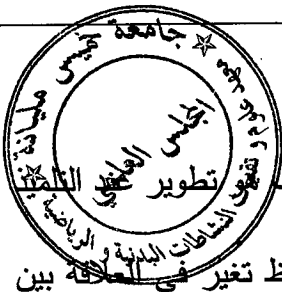 جامعة خميس مليانة
معهد علوم و تقنيات النشاطات البدنية و الرياضية
المجلس العلمي
تطوير عند التلميذ
تغير في العلاقة بين